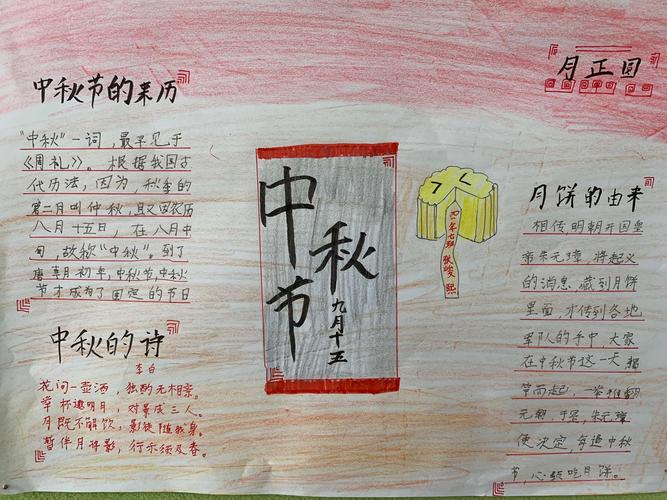 中秋节的来历
"中秋"一词,最早见于
《周礼》。根据我国古
代历法,因为,秋季的
第二月叫仲秋,且又因农历
八月十五日,在八月中
旬,故称"中秋"。到了
唐朝初年,中秋节,中秋
节才成为了固定的节日
中秋的诗
李白
花间一壶酒,独酌无相亲。
举杯邀明月,对影成三人。
月既不解饮,影徒随我身。
暂伴月将影,行乐须及春。
中秋节
九月十五
月正圆
月饼的由来
相传明朝开国皇
帝朱元璋,将起义
的消息藏到月饼
里面,才传到各地
军队的手中,大家
在中秋节这一天揭
竿而起,一举推翻
元朝,于是,朱元璋
便决定,每逢中秋
节,必须吃月饼。